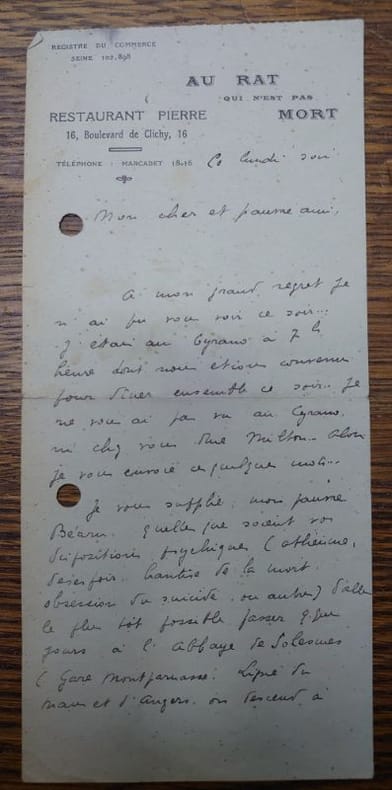 REGISTRE DU COMMERCE
SEINE 102,898
AU RAT
QUI N'EST PAS
MORT
RESTAURANT PIERRE
16, Boulevard de Clichy, 16
TÉLÉPHONE : MARCADET 18-16
Ce lundi soir
Mon cher et pauvre ami,
A mon grand regret je
n'ai pu vous voir ce soir...
J'étais au Cyrano à 7h
heure dont nous étions convenu
pour dîner ensemble ce soir.. Je
ne vous ai pas vu au Cyrano,
ni chez vous Rue Milton. Alors
je vous envoie ces quelques mots...
Je vous supplie, mon pauvre
Béarn, quelles que soient vos
dispositions psychiques (athéisme,
désespoir, hantise de la mort,
obsession du suicide, ou autres) d'aller
le plus tôt possible passer qque
jours à l'Abbaye de Solesmes
(Gare Montparnasse. Ligne du
Mans et d'Angers. on descend à